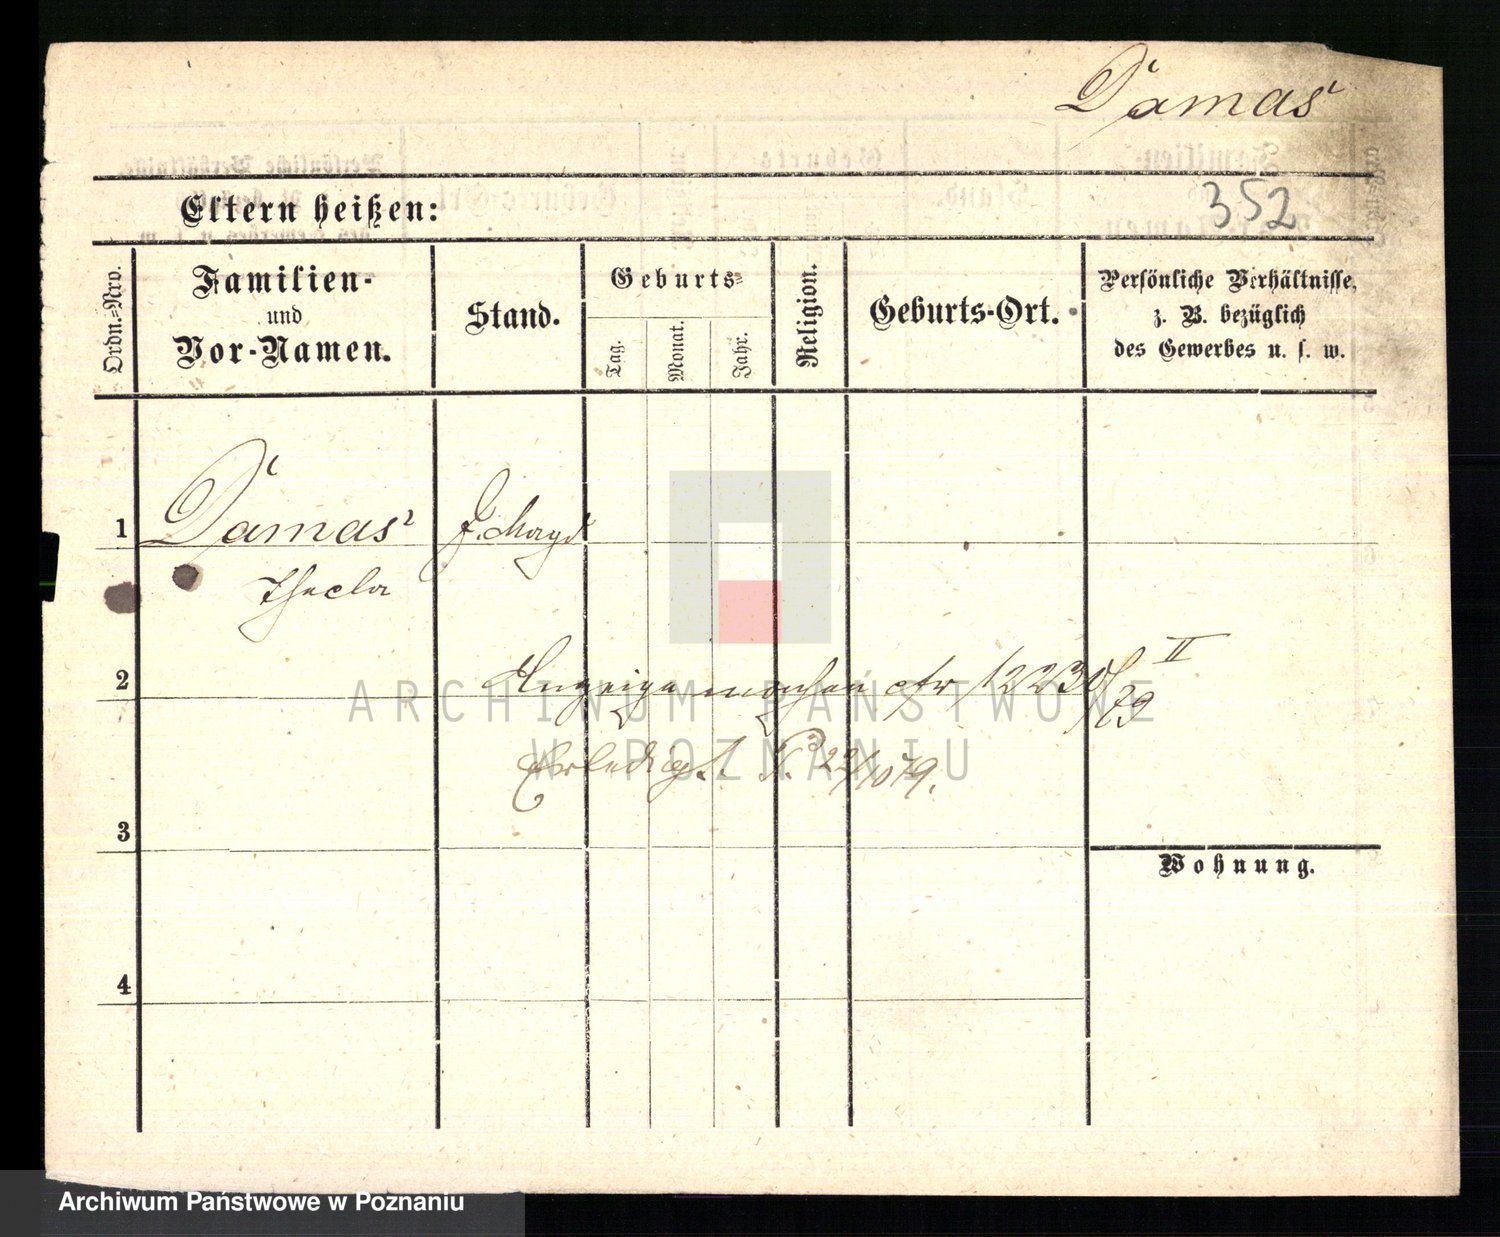 Damas
352
Eltern heißen:
Ordn.-Nro.
Familien-
und
Vor-Namen.
Stand.
Geburts-
Tag.
Monat.
Jahr.
Religion.
Geburts-Ort.
Persönliche Verhältnisse,
z. B. bezüglich
des Gewerbes u. s. w.
1
Damas
Thecla
2
ARCHIWUM PAŃSTWOWE
W POZNANIU
Erledigt. 22/10 79.
3
Wohnung.
4
Archiwum Państwowe w Poznaniu